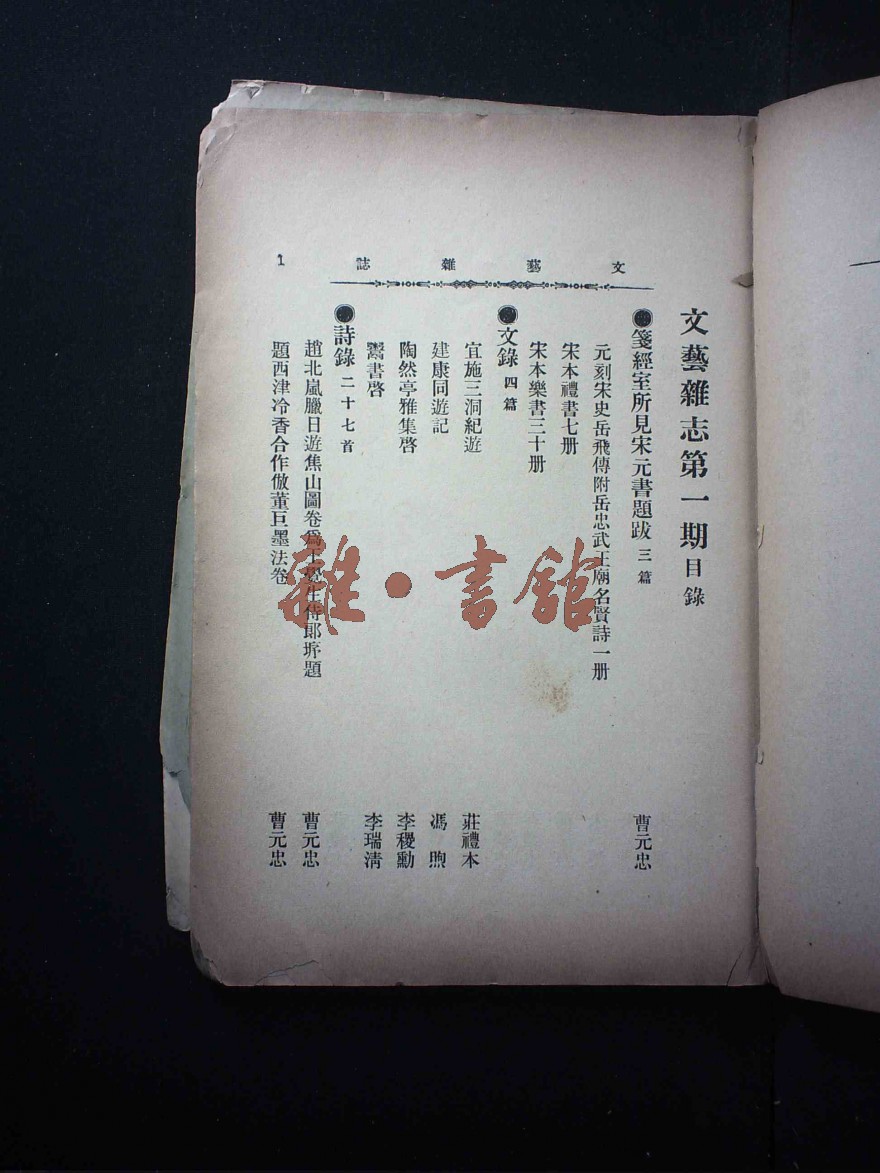 文藝雜志第一期目錄
文藝雜誌
1
●箋經室所見宋元書題跋 三篇 曹元忠
元刻宋史岳飛傳附岳忠武王廟名賢詩一册
宋本禮書七册
宋本樂書三十册
●文錄 四篇
宜施三洞紀遊 莊禮本
建康同遊記 馮煦
陶然亭雅集啓 李稷勳
鬻書啓 李瑞淸
●詩錄 二十七首
趙北嵐臘日遊焦山圖卷爲王 生侍郎 題 曹元忠
題西津冷香合作倣董巨墨法卷 曹元忠
雜·書館